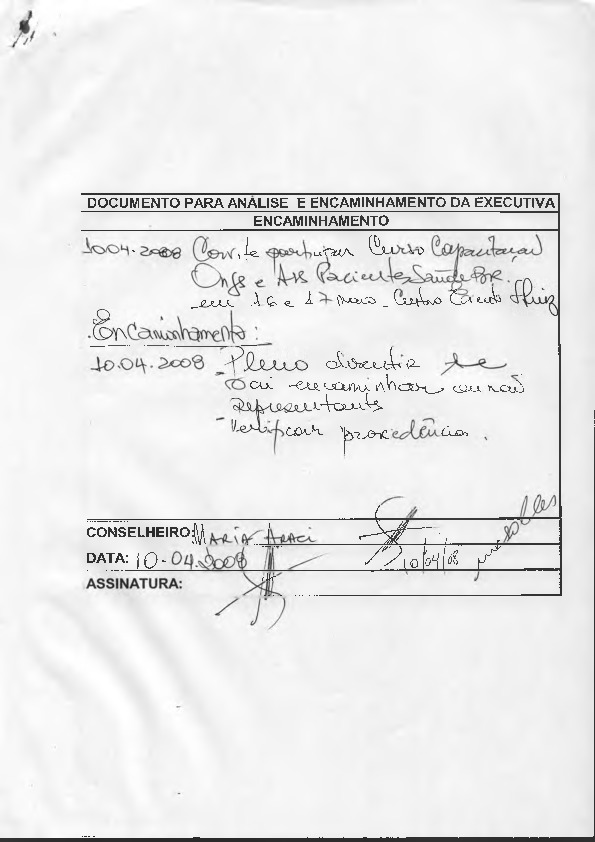 DOCUMENTO PARA ANÁLISE E ENCAMINHAMENTO DA EXECUTIVA
ENCAMINHAMENTO
10.04.2008 Convite participar Curso Capacitação
Ongs e Ass Pacientes Saúde POR.
em 16 e 17 maio - Centro Evento
Encaminhamento:
10.04.2008 - Pleno discutir se
vai encaminhar ou não
representante
- Verificar procedência.
CONSELHEIRO: MARIA ARACI
DATA: 10-04.2008 10/04/08
ASSINATURA: